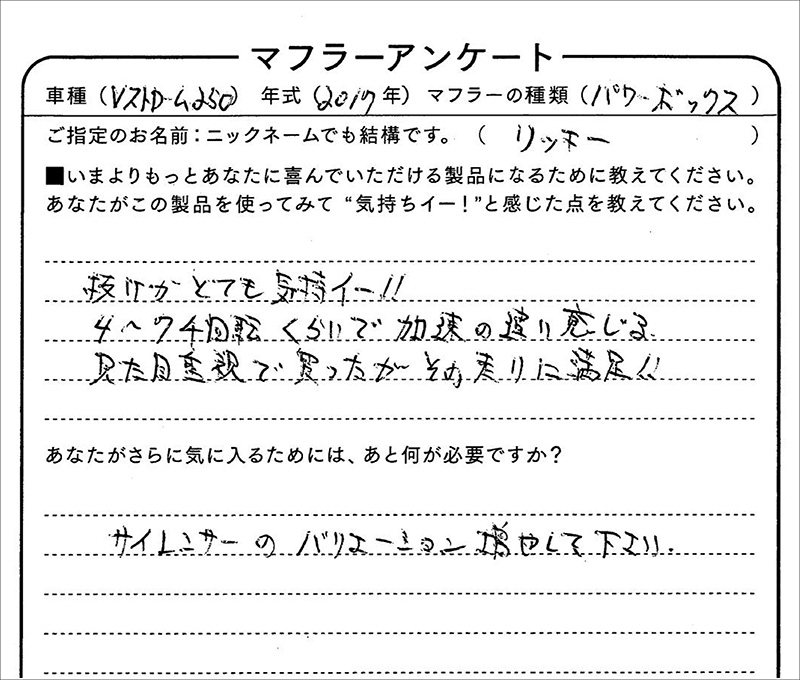 マフラーアンケート
車種（Vストローム250） 年式（2017年）マフラーの種類（パワーボックス）
ご指定のお名前：ニックネームでも結構です。（ リッキー ）
■いまよりもっとあなたに喜んでいただける製品になるために教えてください。
あなたがこの製品を使ってみて“気持ちイー！”と感じた点を教えてください。
抜けがとても気持イー!!
4〜7千回転くらいで加速の違い感じる
見た目重視で買ったがその走りに満足!!
あなたがさらに気に入るためには、あと何が必要ですか？
サイレンサーのバリエーション増やして下さい.